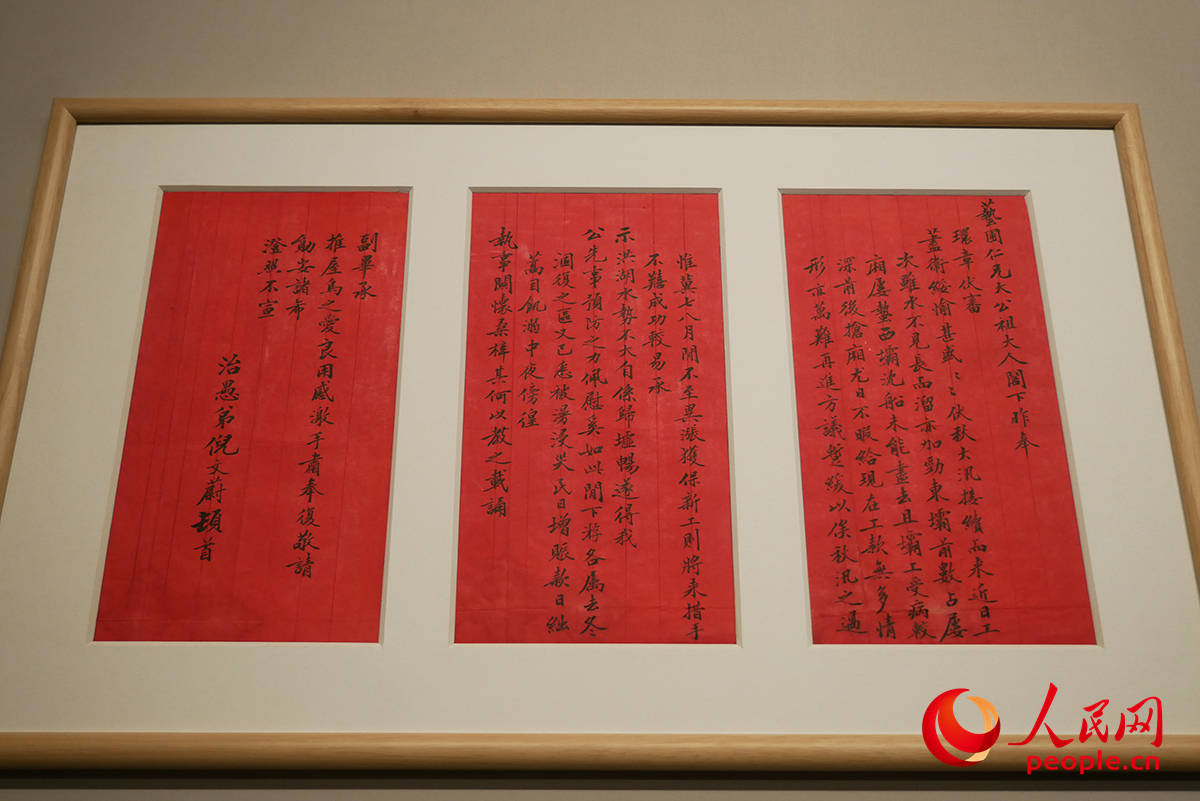 藝圃仁兄大公祖大人閣下昨奉
環章伏審
藎衛綏愉甚感〻伏秋大汛接續而來近日工
次雖水不見長而溜亦加勁東壩前數占屢
廂屢蟄西壩沈船未能盡去且壩工受病較
深前後搶廂尤日不暇給現在工款無多情
形亦萬難再進方議暫緩以俟秋汛之過
惟冀七八月間不至異漲獲保新工則將來措手
不難成功較易承
示洪湖水勢不大自係歸墟暢遂得我
公先事預防之力佩慰奚如此間下游各屬去冬
涸復之區又已悉被湯浸災民日增賑款日絀
蒿目飢溺中夜傍徨
執事關懷桑梓其何以教之載誦
副畢承
推屋烏之愛良用感激手肅奉復敬請
勛安諸希
澄照不宣
治愚弟倪文蔚頓首
人民网
people.cn